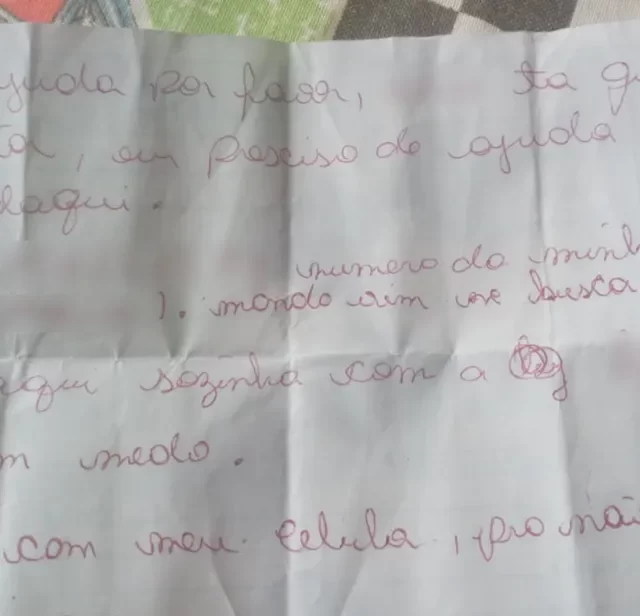 juda por favor, ta g
ta, eu presciso de ajuda
daqui.
numero da minh
). mando vim me busca
aqui sozinha com a
m medo.
com meu celula, pro não